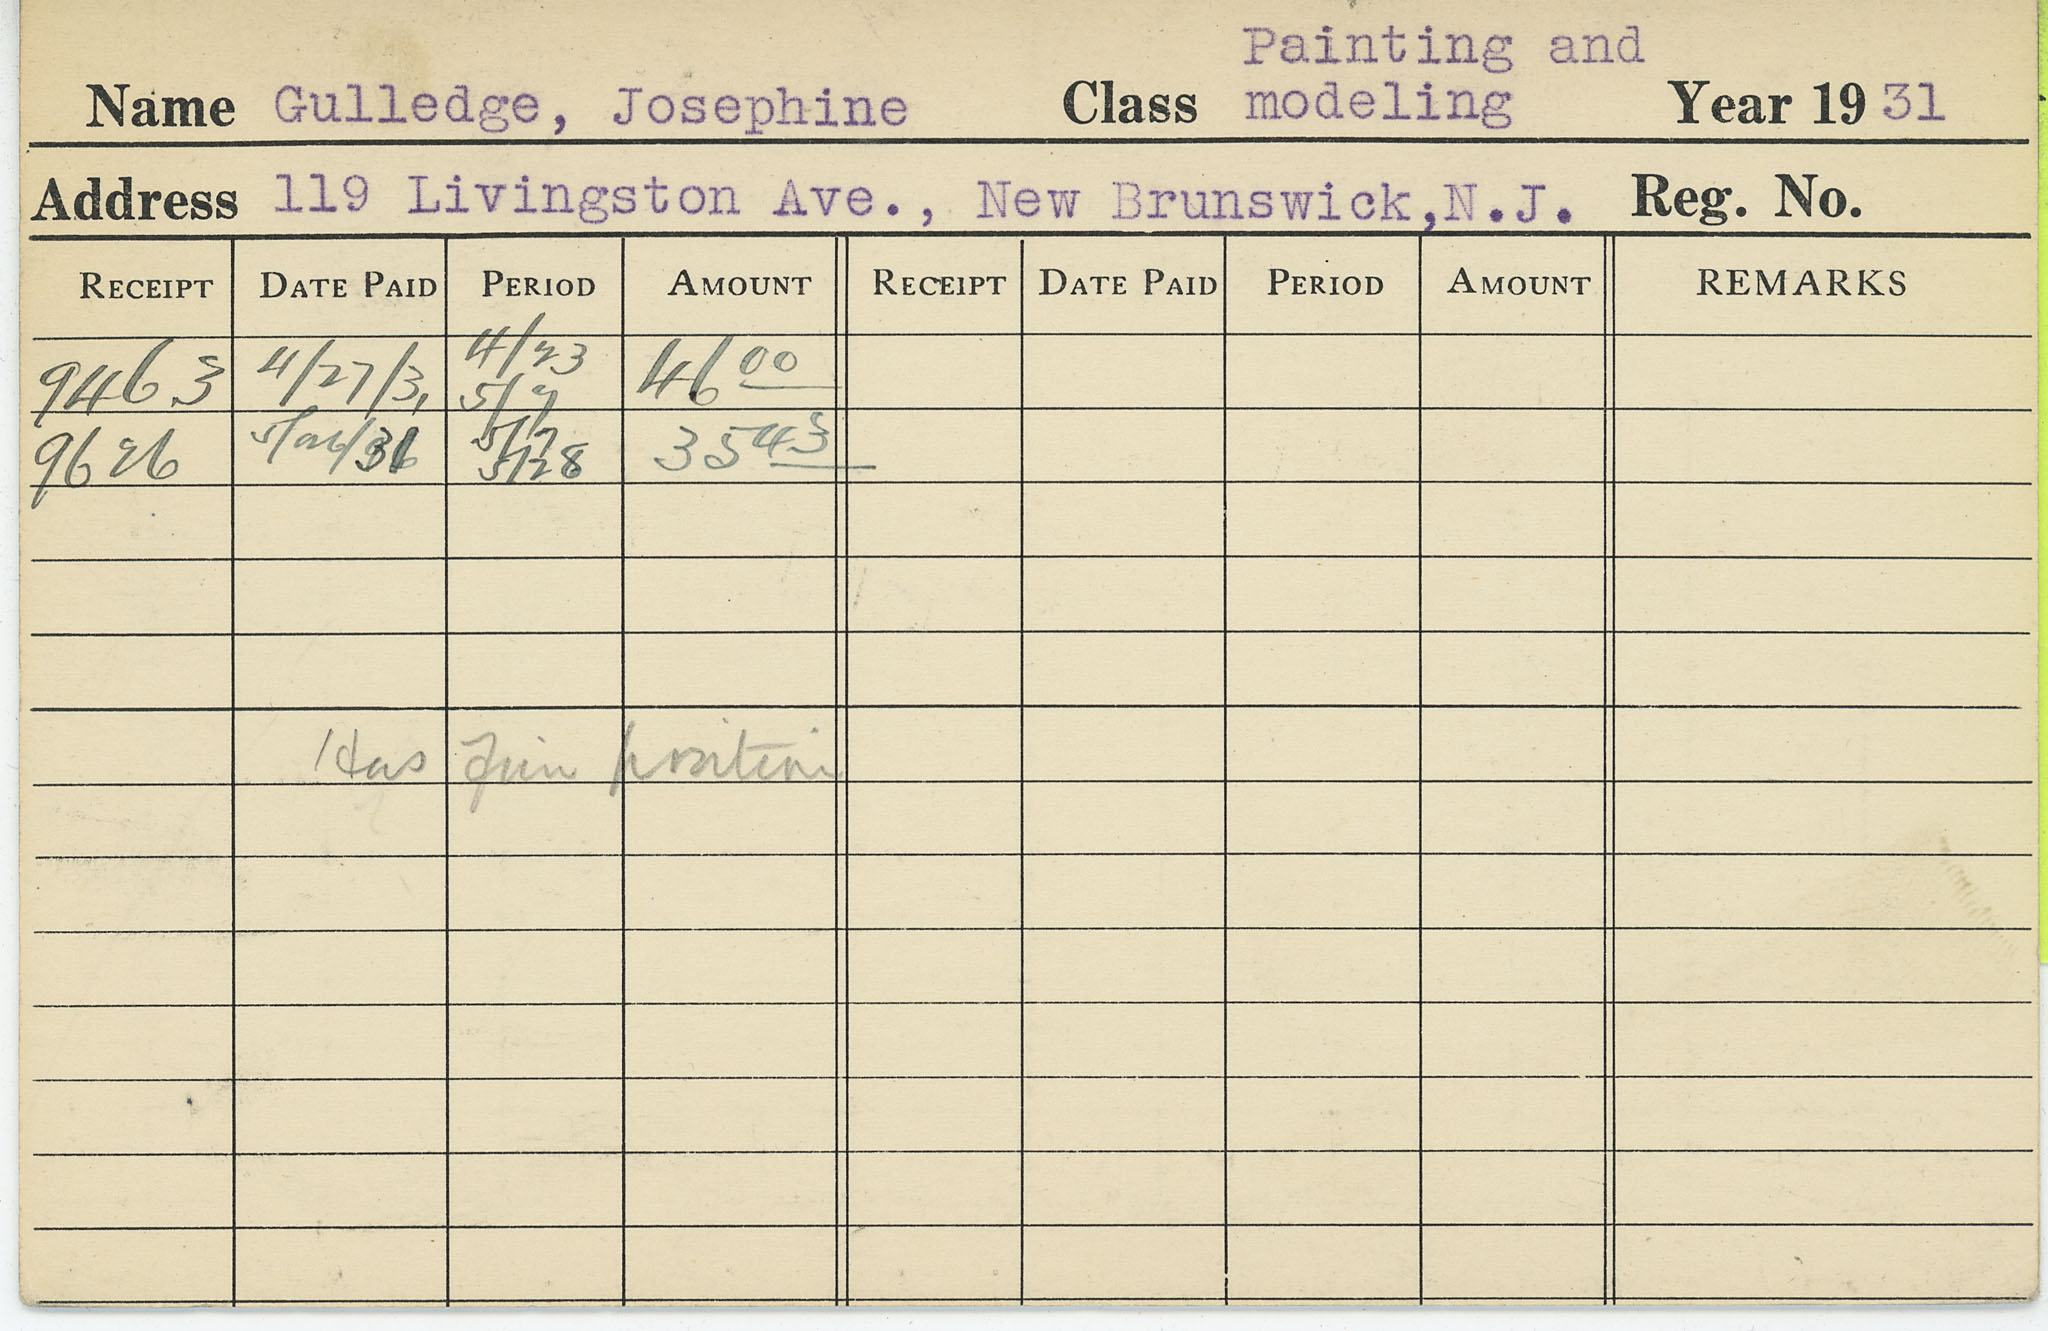 Painting and
Name Gulledge, Josephine Class modeling Year 19 31
Address 119 Livingston Ave., New Brunswick, N.J. Reg. No.
RECEIPT DATE PAID PERIOD AMOUNT RECEIPT DATE PAID PERIOD AMOUNT REMARKS
9463 4/27/31 4/23 5/7 46 00
9626 5/26/31 5/7 5/28 35 43
Has fine position